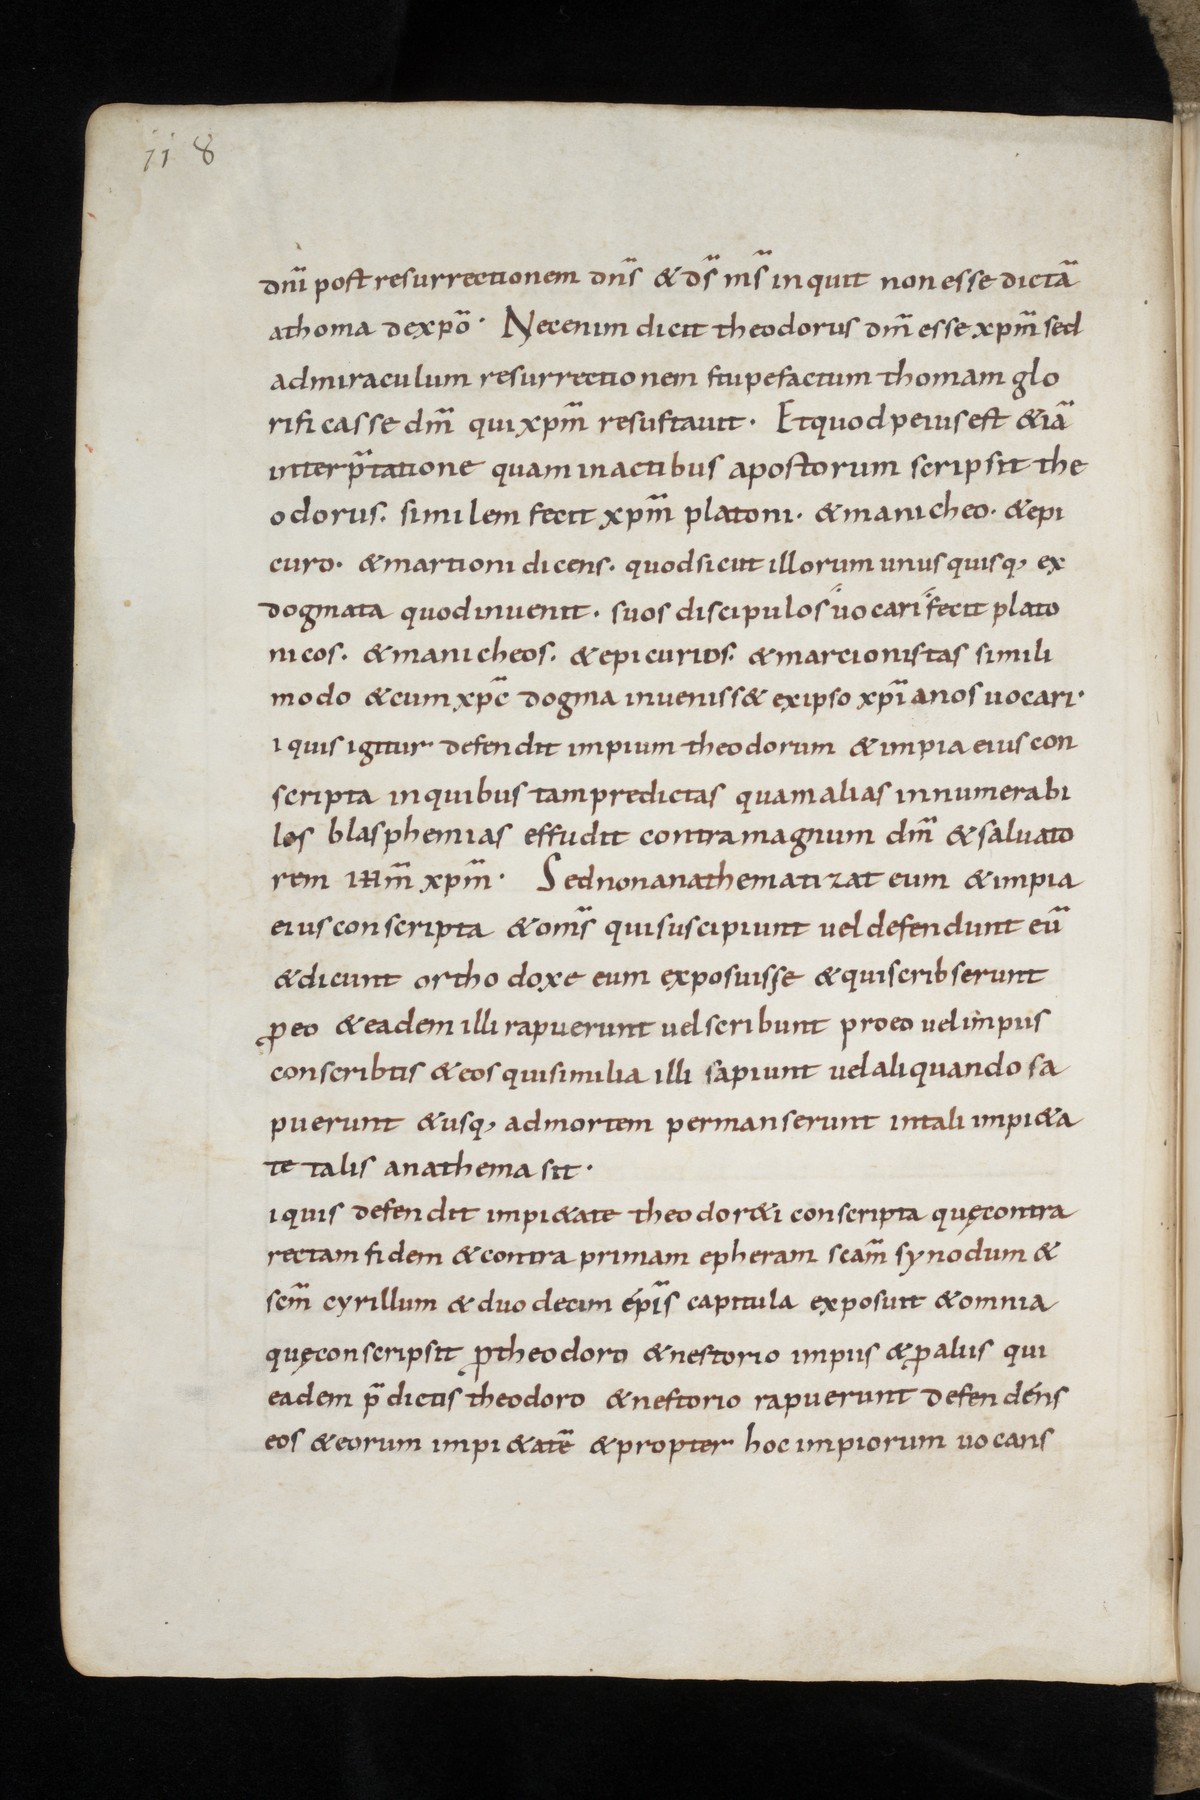 118
dn̄i post resurrectionem dn̄s & ds̄ ms̄ inquit non esse dictā
a thoma de xpō· Nec enim dicit theodorus dm̄ esse xpm̄ sed
ad miraculum resurrectionem stupefactum thomam glo
rificasse dm̄ qui xpm̄ resustauit· Et quod peius est &iā
interp̄tatione quam in actibus apostorum scripsit the
odorus. similem fecit xpm̄ platoni· & manicheo· & epi
curo· & martioni dicens· quod sicut illorum unusquisq, ex
dogmata quod inuenit· suos discipulos uocari fecit plato
nicos. & manicheos. & epicurios. & marcionistas simili
modo & cum xpc̄ dogma inueniss& ex ipso xpīanos uocari·
i quis igitur defendit impium theodorum & impia eius con
scripta in quibus tam predictas quam alias innumerabi
les blasphemias effudit contra magnum dm̄ & saluato
rem ihm̄ xpm̄· Sed non anathematizat eum & impia
eius conscripta & oms̄ qui suscipiunt uel defendunt eū
& dicunt orthodoxe eum exposuisse & qui scribserunt
ꝓ eo & eadem illi rapuerunt uel scribunt pro eo uel impiis
conscribtis & eos qui similia illi sapiunt uel aliquando sa
puerunt & usq, ad mortem permanserunt in tali impi&a
te talis anathema sit·
i quis defendit impi&ate theodor&i conscripta quę contra
rectam fidem & contra primam epheram scam̄ synodum &
scm̄ cyrillum & duodecim epīs capitula exposuit & omnia
quę conscripsit ꝓ theodoro & nestorio impiis & ꝓ aliis qui
eadem p̄dictis theodoro & nestorio rapuerunt defendens
eos & eorum impi&atē & propter hoc impiorum uocans